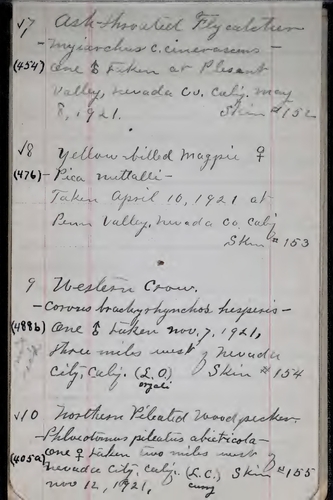 √7 Ash-throated Flycatcher
- Myiarchus c. cinerascens -
(454) One ♂ taken at Plesant
Valley, Nevada Co. Calif. May
8, 1921. Skin #152
√8 Yellow-billed Magpie ♀
(476) - Pica nuttalli -
Taken April 10, 1921 at
Penn Valley, Nevada Co. Calif.
Skin #153
9 Western Crow.
- Corvus brachyrhynchos hesperis -
(488b) One ♂ taken Nov. 7, 1921,
three miles west of Nevada
City, Calif. (L.O.) Skin #154
√10 Northern Pileated Woodpecker.
- Phloeotomus pileatus abieticola -
(405a) One ♀ taken two miles west of
Nevada City, Calif. (L.C.) Skin #155
Nov 12, 1921,